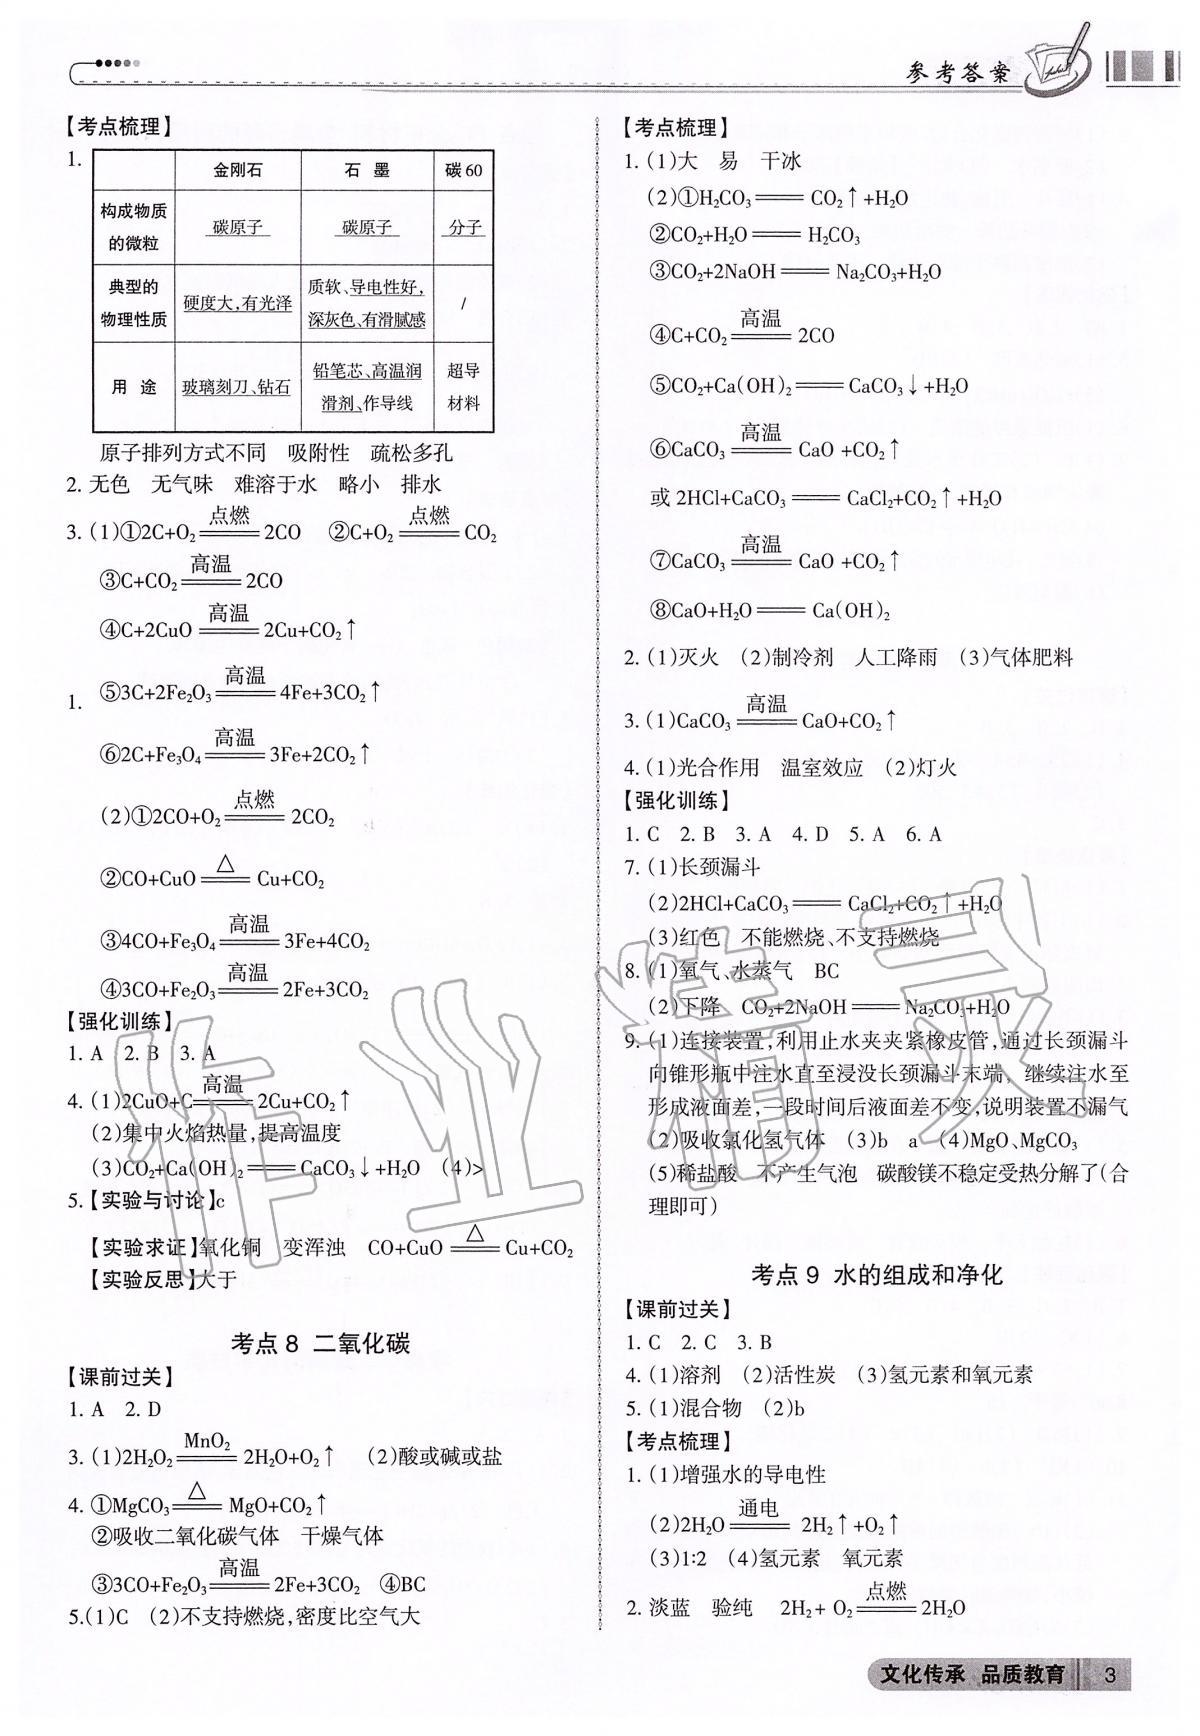 参考答案
【考点梳理】
1.
金刚石 石墨 碳60
构成物质的微粒 碳原子 碳原子 分子
典型的物理性质 硬度大,有光泽 质软、导电性好,深灰色、有滑腻感 /
用途 玻璃刻刀、钻石 铅笔芯、高温润滑剂、作导线 超导材料
原子排列方式不同 吸附性 疏松多孔
2. 无色 无气味 难溶于水 略小 排水
3. (1)①2C+O₂ ══点燃══ 2CO ②C+O₂ ══点燃══ CO₂
③C+CO₂ ══高温══ 2CO
④C+2CuO ══高温══ 2Cu+CO₂↑
1. ⑤3C+2Fe₂O₃ ══高温══ 4Fe+3CO₂↑
⑥2C+Fe₃O₄ ══高温══ 3Fe+2CO₂↑
(2)①2CO+O₂ ══点燃══ 2CO₂
②CO+CuO ══△══ Cu+CO₂
③4CO+Fe₃O₄ ══高温══ 3Fe+4CO₂
④3CO+Fe₂O₃ ══高温══ 2Fe+3CO₂
【强化训练】
1. A 2. B 3. A
4. (1)2CuO+C ══高温══ 2Cu+CO₂↑
(2)集中火焰热量,提高温度
(3)CO₂+Ca(OH)₂ ══ CaCO₃↓+H₂O (4)>
5.【实验与讨论】c
【实验求证】氧化铜 变浑浊 CO+CuO ══△══ Cu+CO₂
【实验反思】大于
考点8 二氧化碳
【课前过关】
1. A 2. D
3. (1)2H₂O₂ ══MnO₂══ 2H₂O+O₂↑ (2)酸或碱或盐
4. ①MgCO₃ ══△══ MgO+CO₂↑
②吸收二氧化碳气体 干燥气体
③3CO+Fe₂O₃ ══高温══ 2Fe+3CO₂ ④BC
5.(1)C (2)不支持燃烧,密度比空气大
【考点梳理】
1. (1)大 易 干冰
(2)①H₂CO₃ ══ CO₂↑+H₂O
②CO₂+H₂O ══ H₂CO₃
③CO₂+2NaOH ══ Na₂CO₃+H₂O
④C+CO₂ ══高温══ 2CO
⑤CO₂+Ca(OH)₂ ══ CaCO₃↓+H₂O
⑥CaCO₃ ══高温══ CaO +CO₂↑
或 2HCl+CaCO₃ ══ CaCl₂+CO₂↑+H₂O
⑦CaCO₃ ══高温══ CaO +CO₂↑
⑧CaO+H₂O ══ Ca(OH)₂
2. (1)灭火 (2)制冷剂 人工降雨 (3)气体肥料
3. (1)CaCO₃ ══高温══ CaO+CO₂↑
4. (1)光合作用 温室效应 (2)灯火
【强化训练】
1. C 2. B 3. A 4. D 5. A 6. A
7. (1)长颈漏斗
(2)2HCl+CaCO₃ ══ CaCl₂+CO₂↑+H₂O
(3)红色 不能燃烧、不支持燃烧
8. (1)氧气、水蒸气 BC
(2)下降 CO₂+2NaOH ══ Na₂CO₃+H₂O
9. (1)连接装置,利用止水夹夹紧橡皮管,通过长颈漏斗
向锥形瓶中注水直至浸没长颈漏斗末端,继续注水至
形成液面差,一段时间后液面差不变,说明装置不漏气
(2)吸收氯化氢气体 (3)b a (4)MgO、MgCO₃
(5)稀盐酸 不产生气泡 碳酸镁不稳定受热分解了(合
理即可)
考点9 水的组成和净化
【课前过关】
1. C 2. C 3. B
4. (1)溶剂 (2)活性炭 (3)氢元素和氧元素
5. (1)混合物 (2)b
【考点梳理】
1. (1)增强水的导电性
(2)2H₂O ══通电══ 2H₂↑+O₂↑
(3)1∶2 (4)氢元素 氧元素
2. 淡蓝 验纯 2H₂+ O₂ ══点燃══ 2H₂O
文化传承 品质教育 3
作业精灵